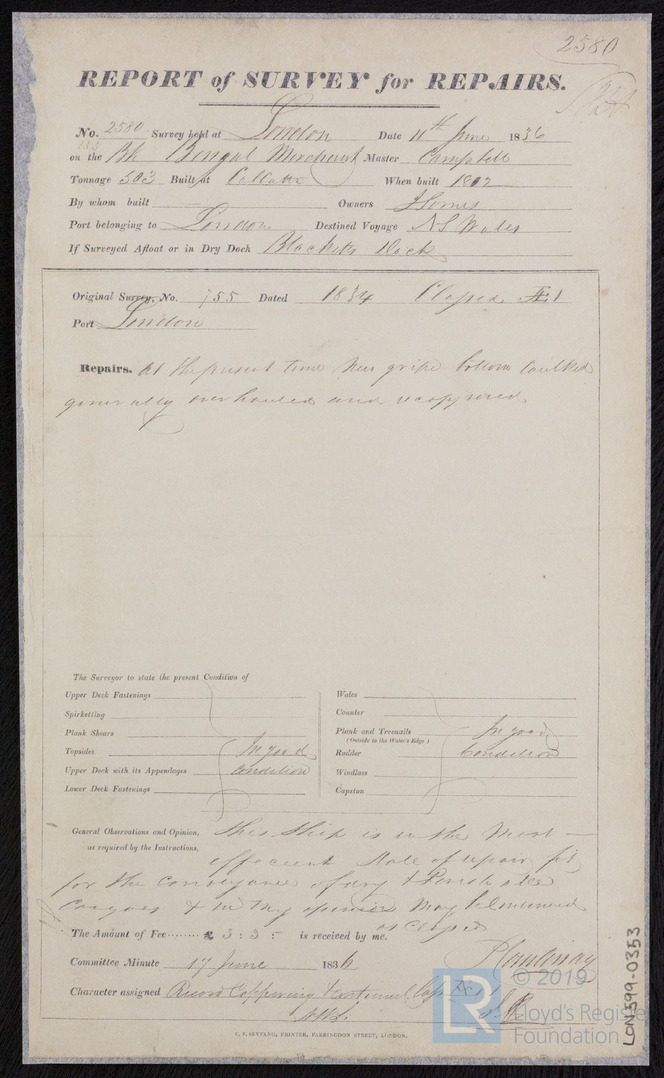 2580
REPORT of SURVEY for REPAIRS.
No. 2580 Survey held at London Date 11th June 1836
on the Bk Bengal Merchant Master Campbell
Tonnage 503 Built at Calcutta When built 1812
By whom built Owners
Port belonging to London Destined Voyage N S Wales
If Surveyed Afloat or in Dry Dock Blacketts Dock
Original Survey, No. 755 Dated 1834 Classed Æ 1
Port London
Repairs. At the present time New gripe bottom caulked
generally overhauled and recoppered.
The Surveyor to state the present Condition of
Upper Deck Fastenings
Spirketting
Plank Shears
Topsides In good
Upper Deck with its Appendages condition
Lower Deck Fastenings
Wales
Counter
Plank and Treenails In good
(Outside to the Water's Edge)
Rudder Condition
Windlass
Capstan
General Observations and Opinion, This Ship is in the Most
as required by the Instructions, efficient State of repair fit
for the conveyance of dry & Perishable
Cargoes & in my opinion May be Continued
as Classed
The Amount of Fee ........ £ 3:3:- is received by me.
Committee Minute 17 June 1836
Character assigned Record Coppering & continued Class Æ 1
C. F. SEYFANG, PRINTER, FARRINGDON STREET, LONDON.
© 2019
LR Lloyd's Register
Foundation
LON599-0353